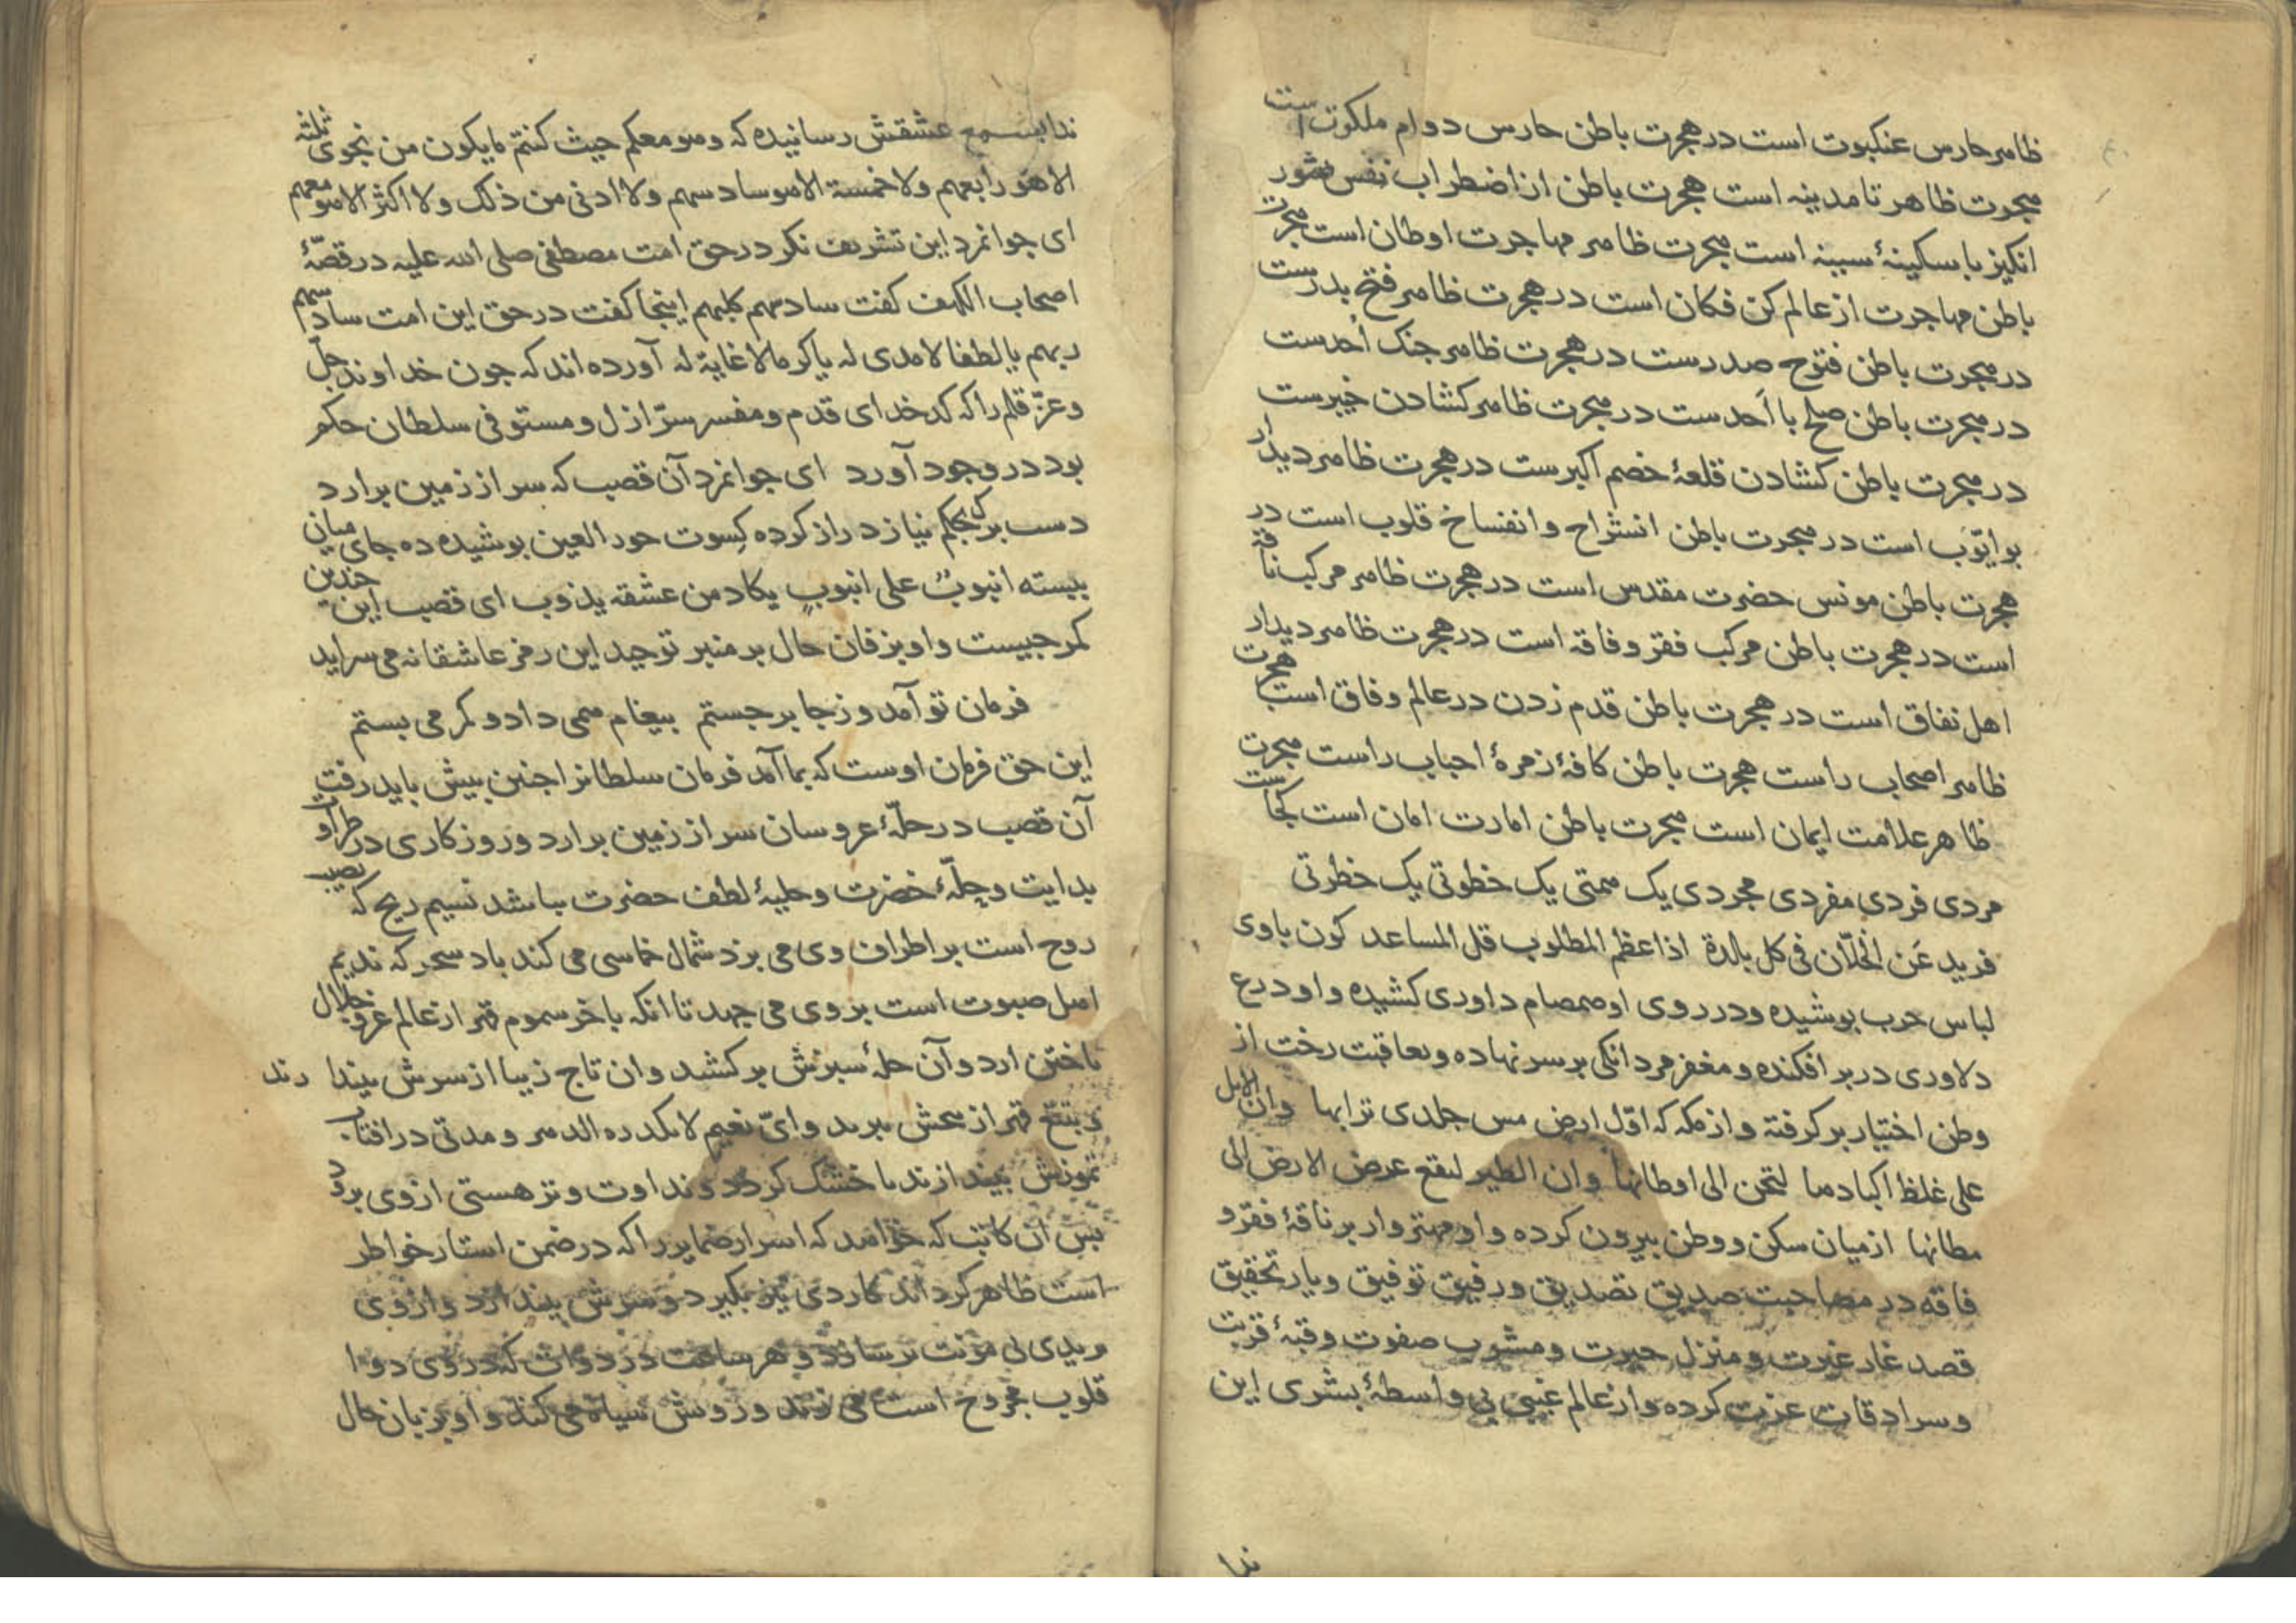 ظاهر حارس عنکبوت است در هجرت باطن حارس دوام ملکوت است
هجرت ظاهر تا مدینه است هجرت باطن از اضطراب نفس شور
انکیز با سکینهٔ سینه است هجرت ظاهر مهاجرت اوطان است هجرت
باطن مهاجرت از عالم کن فکان است در هجرت ظاهر فتح بدرست
در هجرت باطن فتوح صدرست در هجرت ظاهر جنک اُحدست
در هجرت باطن صلح با اَحدست در هجرت ظاهر کشادن خیبرست
در هجرت باطن کشادن قلعهٔ خصم اکبرست در هجرت ظاهر دیدار
بو ایّوب است در هجرت باطن انشراح و انفساخ قلوب است در
هجرت باطن مونس حضرت مقدس است در هجرت ظاهر مرکب ناقه
است در هجرت باطن مرکب فقر و فاقه است در هجرت ظاهر دیدار
اهل نفاق است در هجرت باطن قدم زدن در عالم وفاق است هجرت
ظاهر اصحاب راست هجرت باطن کافهٔ زمرهٔ احباب راست هجرت
ظاهر علامت ایمان است هجرت باطن امارت امان است کجاست
مردی فردی مفردی مجردی یک همتی یک خطوتی یک خطرتی
فرید عَن الخلّان فی کل بلدة اذا عظم المطلوب قل المساعد کون با وی
لباس حرب پوشیده و در روی او صمصام داوری کشیده و او درع
دلاوری در بر افکنده و مغفر مردانکی بر سر نهاده و بعاقبت رخت از
وطن اختیار بر کرفته و از مکه که اوّل ارض مس جلدی ترابها وان الابل
علی غلظ اکبادها لتحن الی اوطانها وان الطیر لیقع عرض الارض الی
مطانها از میان سکن و وطن بیرون کرده و او مهتزوار بر ناقهٔ فقر و
فاقه در مصاحبت صدیق تصدیق و رفیق توفیق و یار تحقیق
قصد غار غیرت و منزل حیرت و مشوب صفوت و قبهٔ قربت
و سرادقات عزت کرده و از عالم غیبی بی واسطهٔ بشری این
ندا
ندا بسمع عشقش رسانیده که وهو معکم حیث کنتم ما یکون من نجوی ثلثه
الا هو رابعهم ولا خمسة الا هو سادسهم ولا ادنی من ذلک ولا اکثر الا هو معهم
ای جوانمرد این تشریف نکر در حق امت مصطفی صلی الله علیه در قصّهٔ
اصحاب الکهف کفت سادسهم کلبهم اینجا کفت در حق این امت سادسهم
ربهم یا لطفا لا مدی له یا کرما لا غایة له آورده اند که چون خداوند جلّ
و عزّ قلم را که کدخدای قدم و مفسر سرّ ازل و مستوفی سلطان حکم
بود در وجود آورد ای جوانمرد آن قصب که سر از زمین برارد
دست نیاز دراز کرده کِسوت حور العین پوشیده ده جای میان
ببسته انبوبٌ علی انبوبٍ یکاد من عشقه یذوب ای قصب این چندین
کمر چیست و او بزفان حال بر منبر توحید این رمز عاشقانه می سراید
فرمان تو آمد و ز جا برجستم پیغام همی داد و کمر می بستم
این حق فرمان اوست که بما آمد فرمان سلطانرا چنین پیش باید رفت
آن قصب در حلّهٔ عروسان سر از زمین برارد و روزکاری در طراوت
بدایت و چلّهٔ خضرت و حلیهٔ لطف حضرت بباشد نسیم ریح که نصیب
روح است بر اطراف وی می بزد شمال خماسی می کند باد سحر که ندیم
اهل صبوت است بر وی می جهد تا انکه باخر سموم قهر از عالم عز و جلال
تاختن ارد و آن حلهٔ سبزش بر کشد وان تاج زیبا از سرش بیندا
رند
و بتیغ قهر از بیخش ببرید وایّ نعیم لا یکدره الدهر و مدتی در افتاب
تموزش بیندازند تا خشک کردد و نداوت و تز هستی از وی برود
پس ان کاتب که خواهد که اسرار ضمایر را که در ضمن استار خواطر
است ظاهر کرداند کاردی تیز بکیرد و سرش بیندازد و از وی
بریدی بی مؤنت برسازد و هر ساعت در دوات که در وی دوا
قلوب مجروح است می زند و رویش سیاه می کند و او بزبان حال